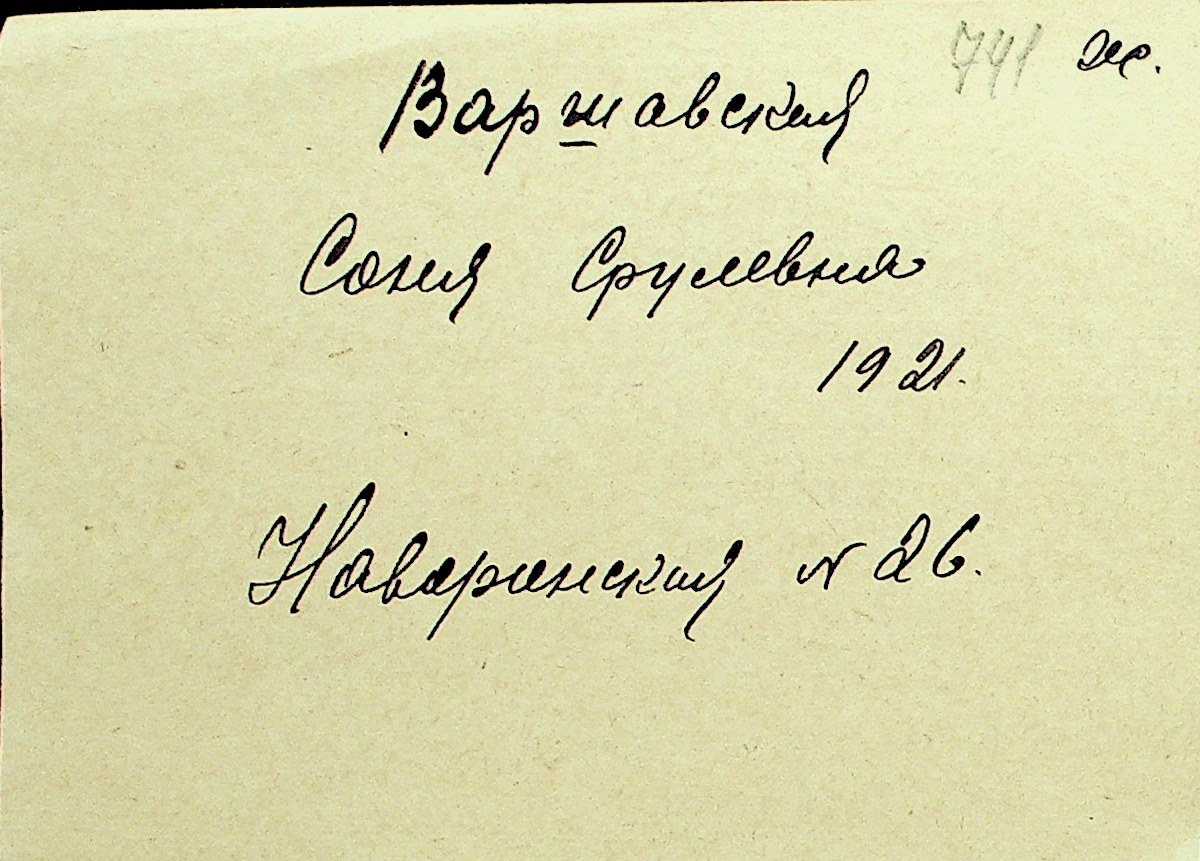 741 ж.
Варшавская
Соня Срулевна
1921.
Наваринская № 26.